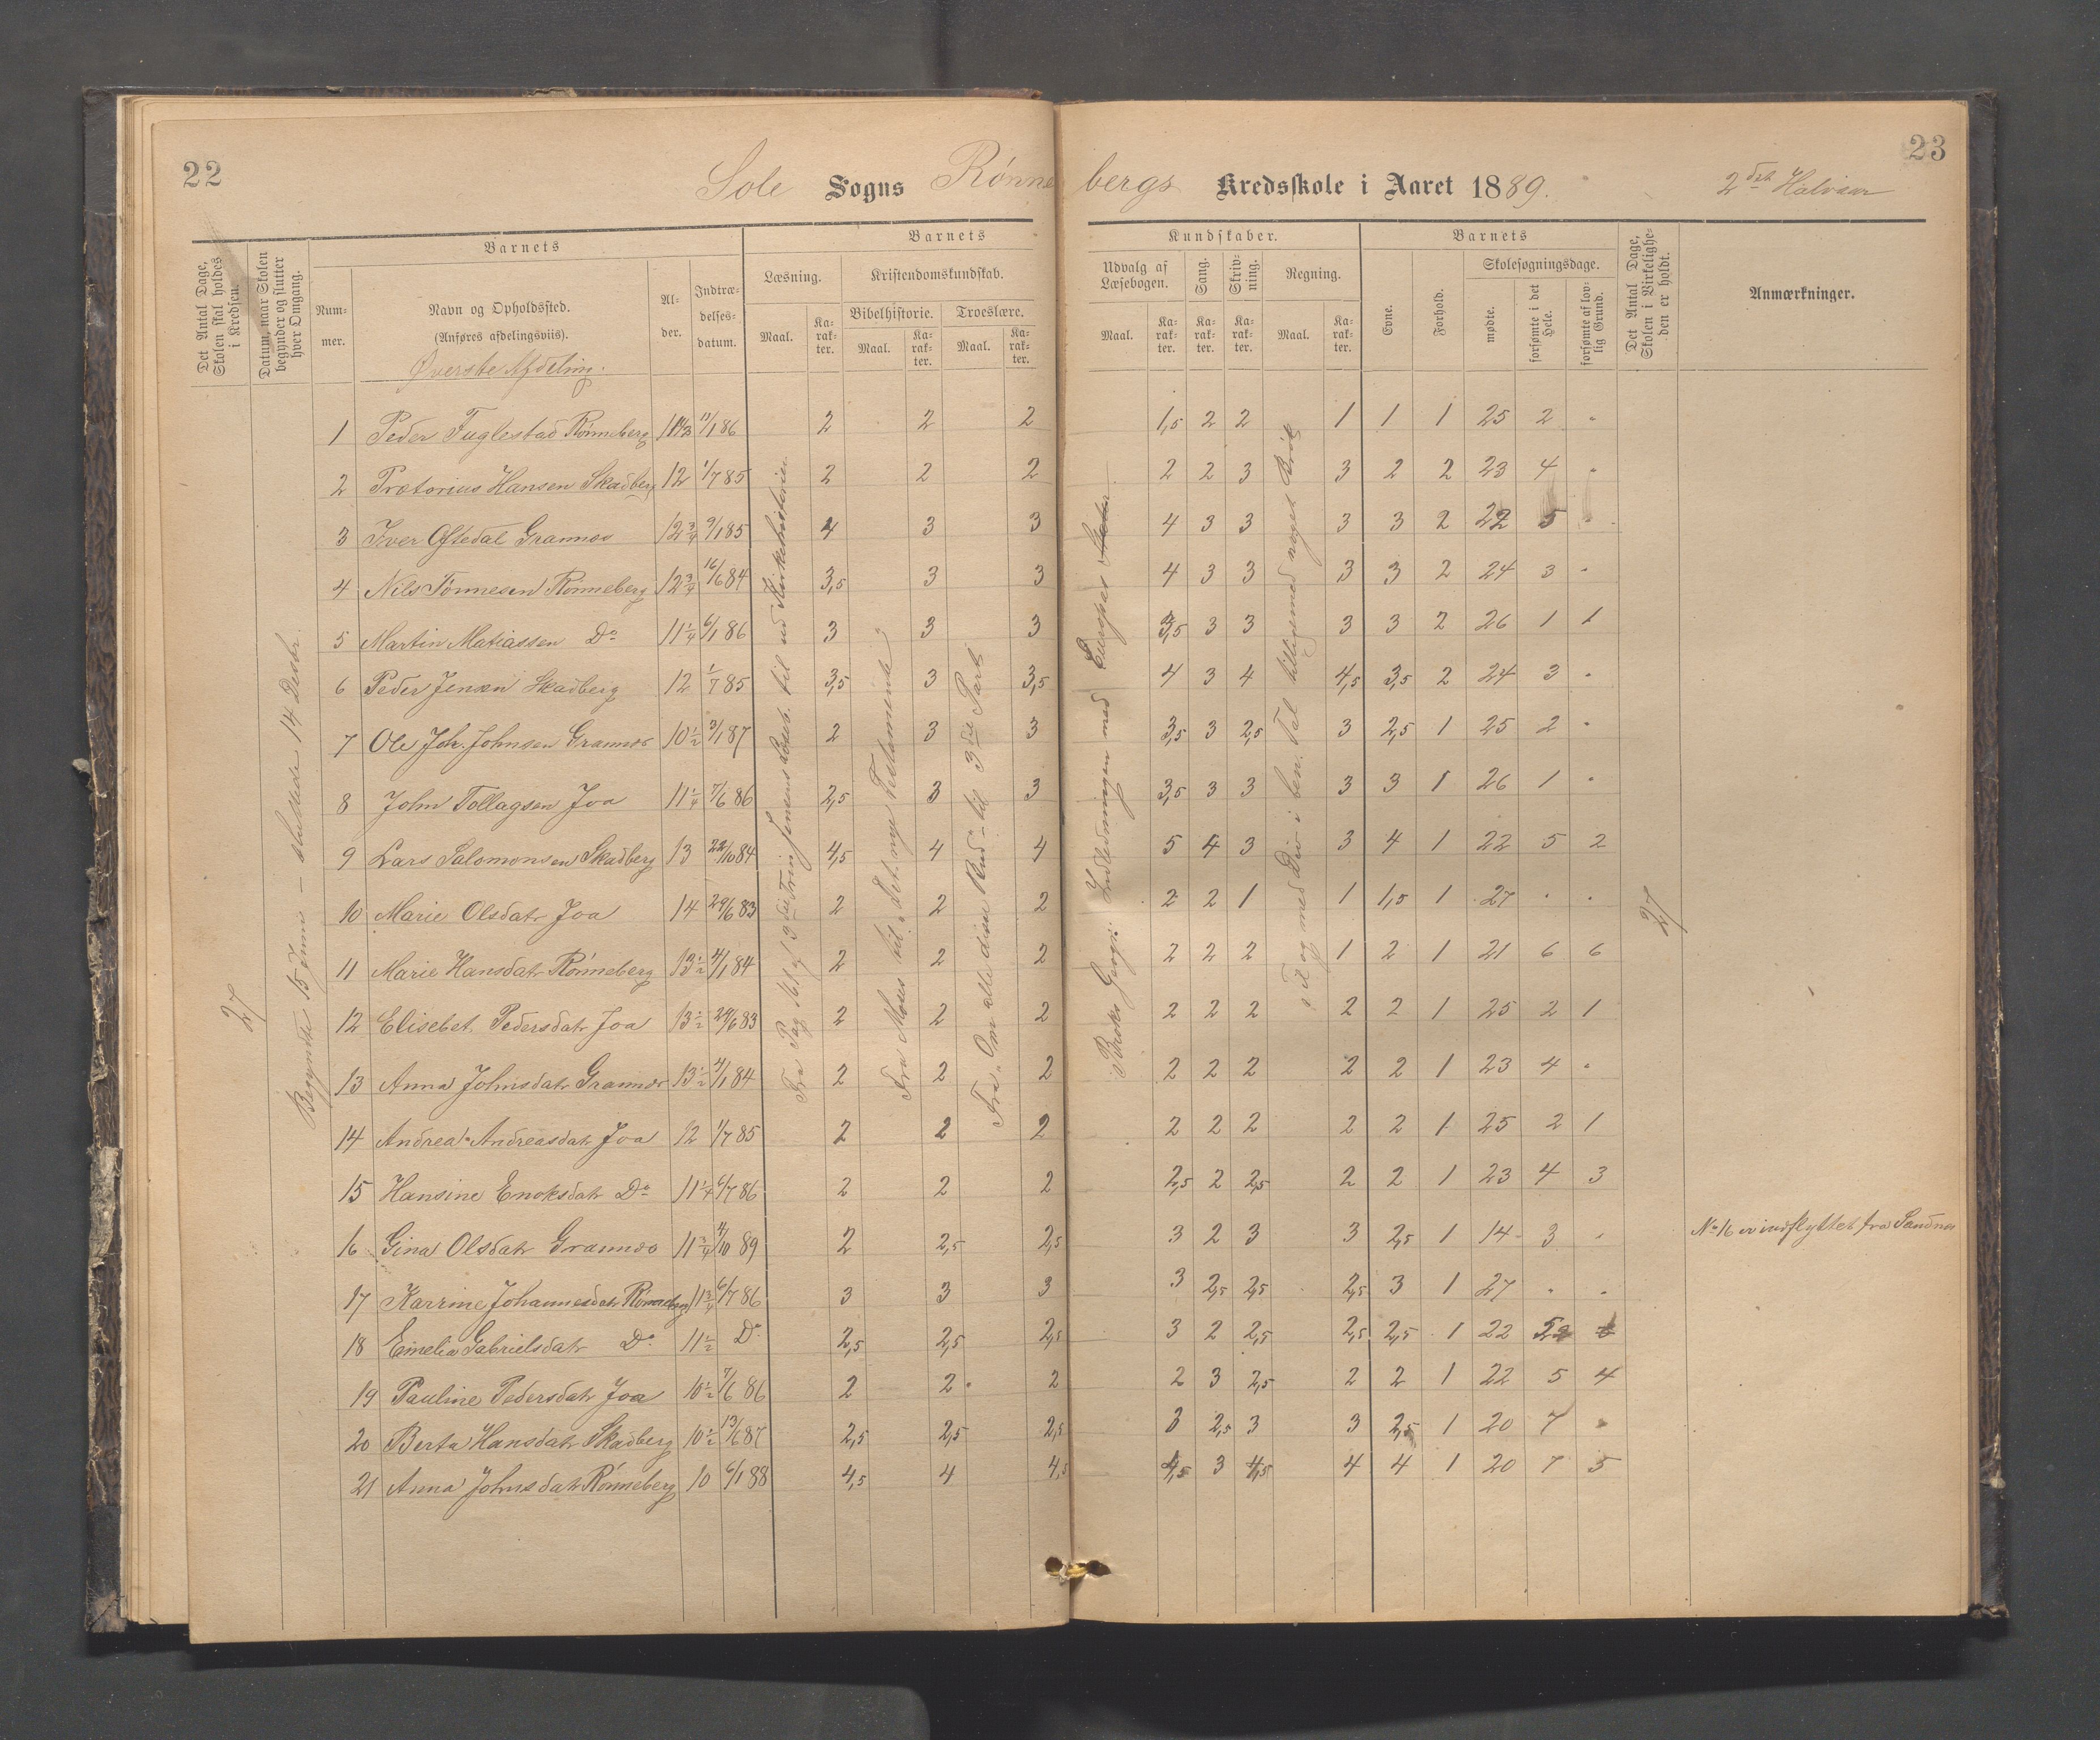 22
23
Sole Sogns Rønnebergs Kredsskole i Aaret 1889. 2det Halvaar
Det Antal Dage, Skolen skal holdes i Kredsen.
Datum, naar Skolen begynder og slutter hver Omgang.
Barnets
Nummer.
Navn og Opholdssted.
(Anføres afdelingsviis).
Øverste Afdeling.
Alder.
Indtrædelsesdatum.
Barnets
Læsning.
Kristendomskundskab.
Bibelhistorie.
Troeslære.
Maal. Karakter. Maal. Karakter. Maal. Karakter.
Kundskaber.
Udvalg af Læsebogen.
Sang.
Skrivning.
Regning.
Maal. Karakter. Karakter. Karakter. Maal. Karakter.
Barnets
Evne.
Forhold.
Skolesøgningsdage.
mødte.
forsømte i det Hele.
forsømte af lovlig Grund.
Det Antal Dage, Skolen i Virkeligheden er holdt.
Anmærkninger.
27
Begyndte 15 Juni – sluttede 14 Decbr.
Til og med Div i ben. Tal tilligemed noget
27
1 Peder Fuglestad Rønneberg 13/1 86 2 2 2 1,5 2 2 1 1 1 25 2 "
2 Prætorius Hansen Skadberg 12 1/7 85 2 2 2 2 2 3 3 2 2 23 4 "
3 Iver Oftedal Grannes 12 3/4 9/1 85 4 3 3 4 3 3 3 3 2 22 5 "
4 Nils Tønnesen Rønneberg 12 3/4 16/6 84 3,5 3 3 4 3 3 3 3 2 24 3 "
5 Martin Matiassen Do 11 1/4 6/1 86 3 3 3 3,5 3 3 3 3 2 26 1 1
6 Peder Jensen Skadberg 12 1/7 85 3,5 3 3,5 4 3 4 4,5 3,5 2 24 3 "
7 Ole Joh. Johnsen Grannes 10 1/2 3/1 87 2 3 3 3,5 3 2,5 3 2,5 1 25 2 "
8 John Tollagsen Joa 11 1/4 7/6 86 2,5 3 3 3,5 3 3 3 3 1 26 1 "
9 Lars Salomonsen Skadberg 13 22/10 84 4,5 4 4 5 4 3 3 4 1 22 5 2
10 Marie Olsdatr Joa 14 29/6 83 2 2 2 2 2 1 1 1,5 1 27 " "
11 Marie Hansdatr Rønneberg 13 1/2 4/1 84 2 2 2 2 2 2 1 2 1 21 6 6
12 Elisebet Pedersdatr Joa 13 1/2 29/6 83 2 2 2 2 2 2 2 2 1 25 2 1
13 Anna Johnsdatr Grannes 13 1/2 4/1 84 2 2 2 2 2 2 2 2 1 23 4 "
14 Andrea Andreasdatr Joa 12 1/7 85 2 2 2 2 2 2 2 2 1 25 2 1
15 Hansine Enoksdatr Do 11 1/4 6/7 86 2 2 2 2,5 2 2,5 2 2 1 23 4 3
16 Gina Olsdatr Grannes 11 3/4 4/10 89 2 2,5 2,5 3 2 3 3 2,5 1 14 3 " No 16 er indflyttet fra Sandnes
17 Karrine Johannesdatr Rønneberg 11 3/4 6/7 86 3 3 3 3 2,5 2,5 2,5 3 1 27 " "
18 Emelia Gabrielsdatr Do 11 1/2 Do 2,5 2,5 2,5 3 2 2,5 2,5 2,5 1 22
19 Pauline Pedersdatr Joa 10 1/2 7/6 86 2 2 2 2 3 2,5 2 2 1 22 5 4
20 Berta Hansdatr Skadberg 10 1/2 13/6 87 2,5 2,5 2,5 3 2,5 3 3 2,5 1 20 7 "
21 Anna Johnsdatr Rønneberg 10 6/1 88 4,5 4 4,5 4,5 3 4,5 4 4 1 20 7 5